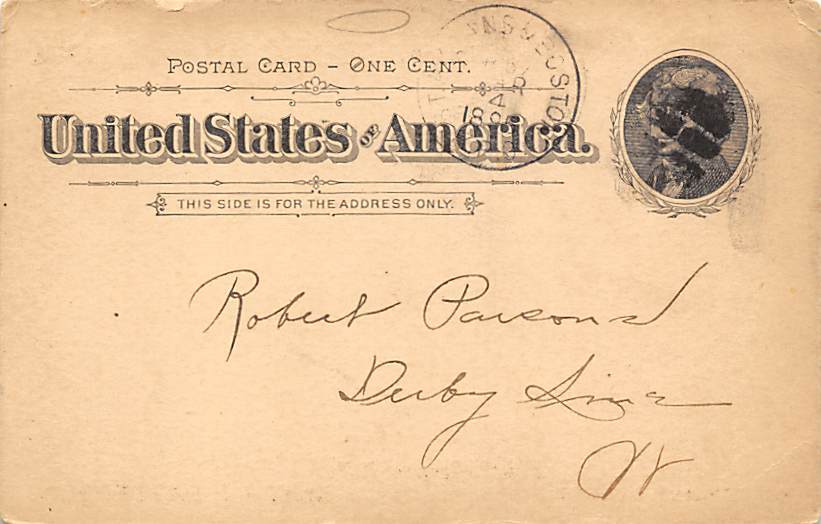 POSTAL CARD – ONE CENT.
United States OF America.
THIS SIDE IS FOR THE ADDRESS ONLY.
Robert Parsons
Derby Line
Vt